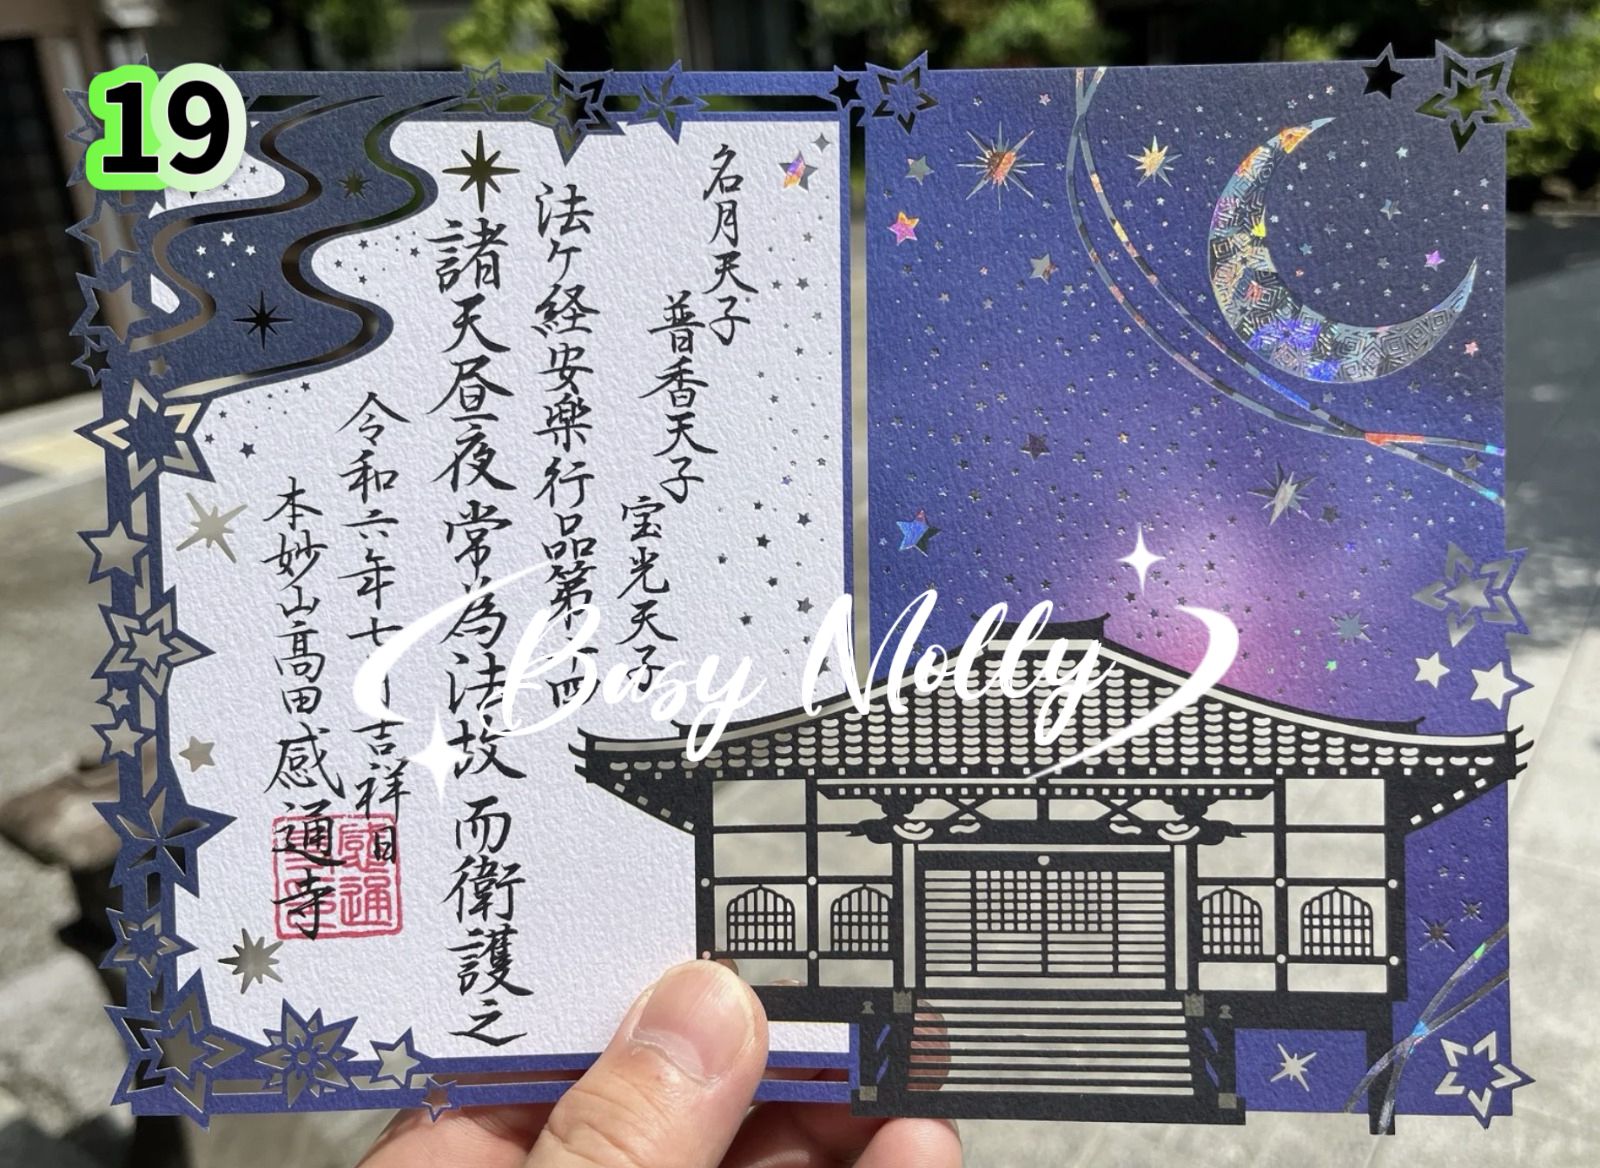 19
名月天子
普香天子
宝光天子
法ケ経安楽行品第十四
諸天昼夜常為法故而衛護之
令和六年七月吉祥日
本妙山高田感通寺
Busy Molly